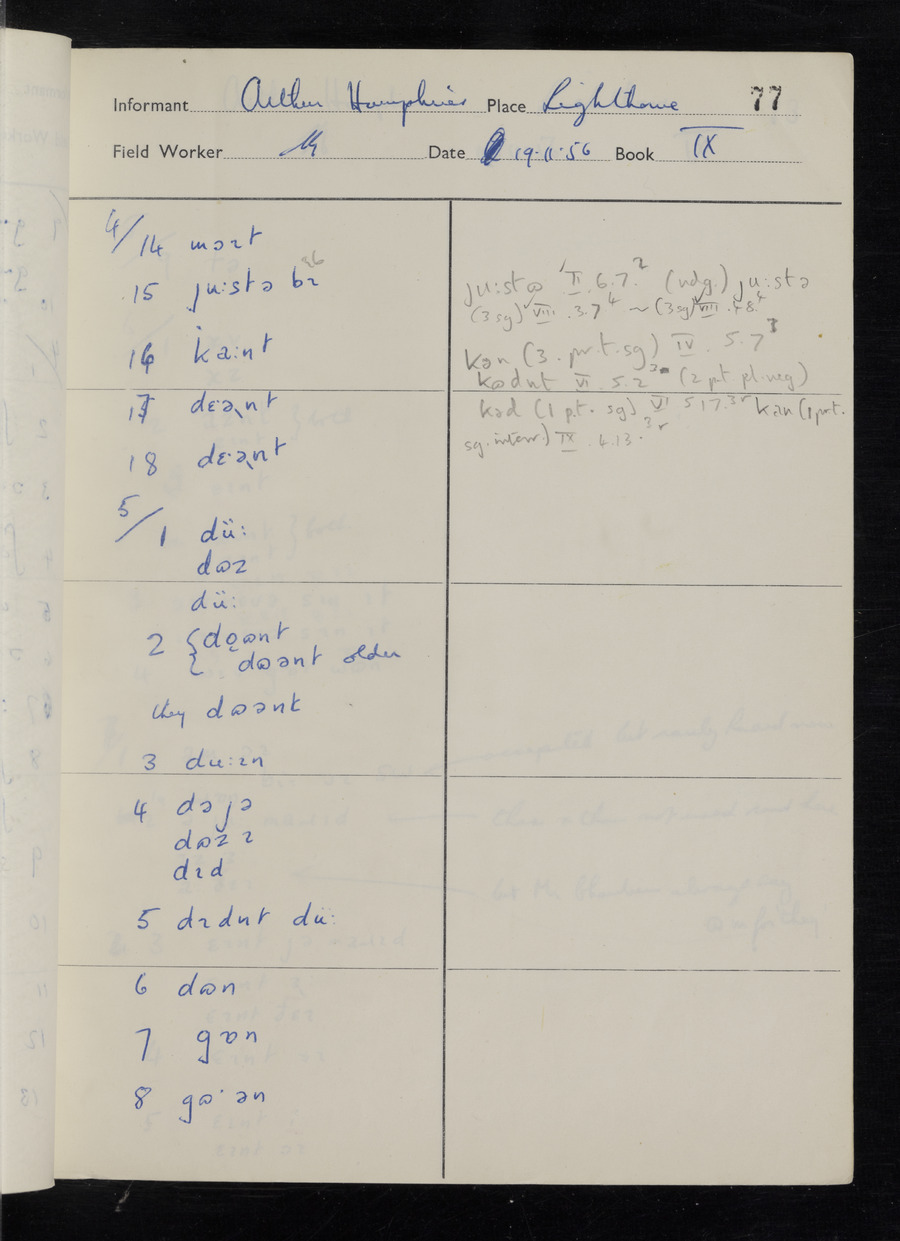 Informant Arthur Humphries Place Lighthorne 77
Field Worker Date 19·11·56 Book IX
4/14 mɔɪt
15 juːstə bɪ
16 kaːnt
17 dɛəɹnt
18 dɛ·əɹnt
5/1 düː
dɷz
düː
2 { dɷnt
dɷənt older
they dɷənt
3 duːɪn
4 də jə
dɷz ɪ
dɪd
5 dɪdnt düː
6 dɷn
7 gɒn
8 gɷ·ən
juːstɷ II.6.7² (ndg.) juːstə
(3 sg) VIII.3.7⁴ ~ (3sg) VIII.4.8⁴
kən (3.pr.t.sg) IV.5.7³
kɷdnt VI.5.2³ (2 pt pl.neg)
kəd (1 p.t. sg) VI 5.17.3r kan (1 pr.t.
sg.interr.) IX.4.13.3r